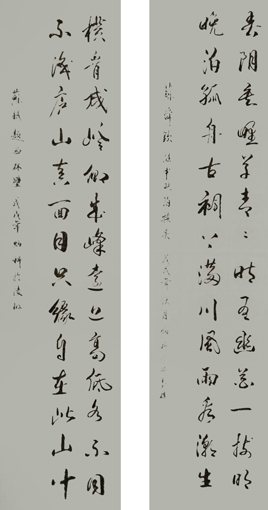 春阴垂野草青々时有幽花一树明
晚泊孤舟古祠下满川风雨看潮生
苏舜钦
横看成岭侧成峰远近高低各不同
不识庐山真面目只缘身在此山中
苏轼题西林壁戊戌年